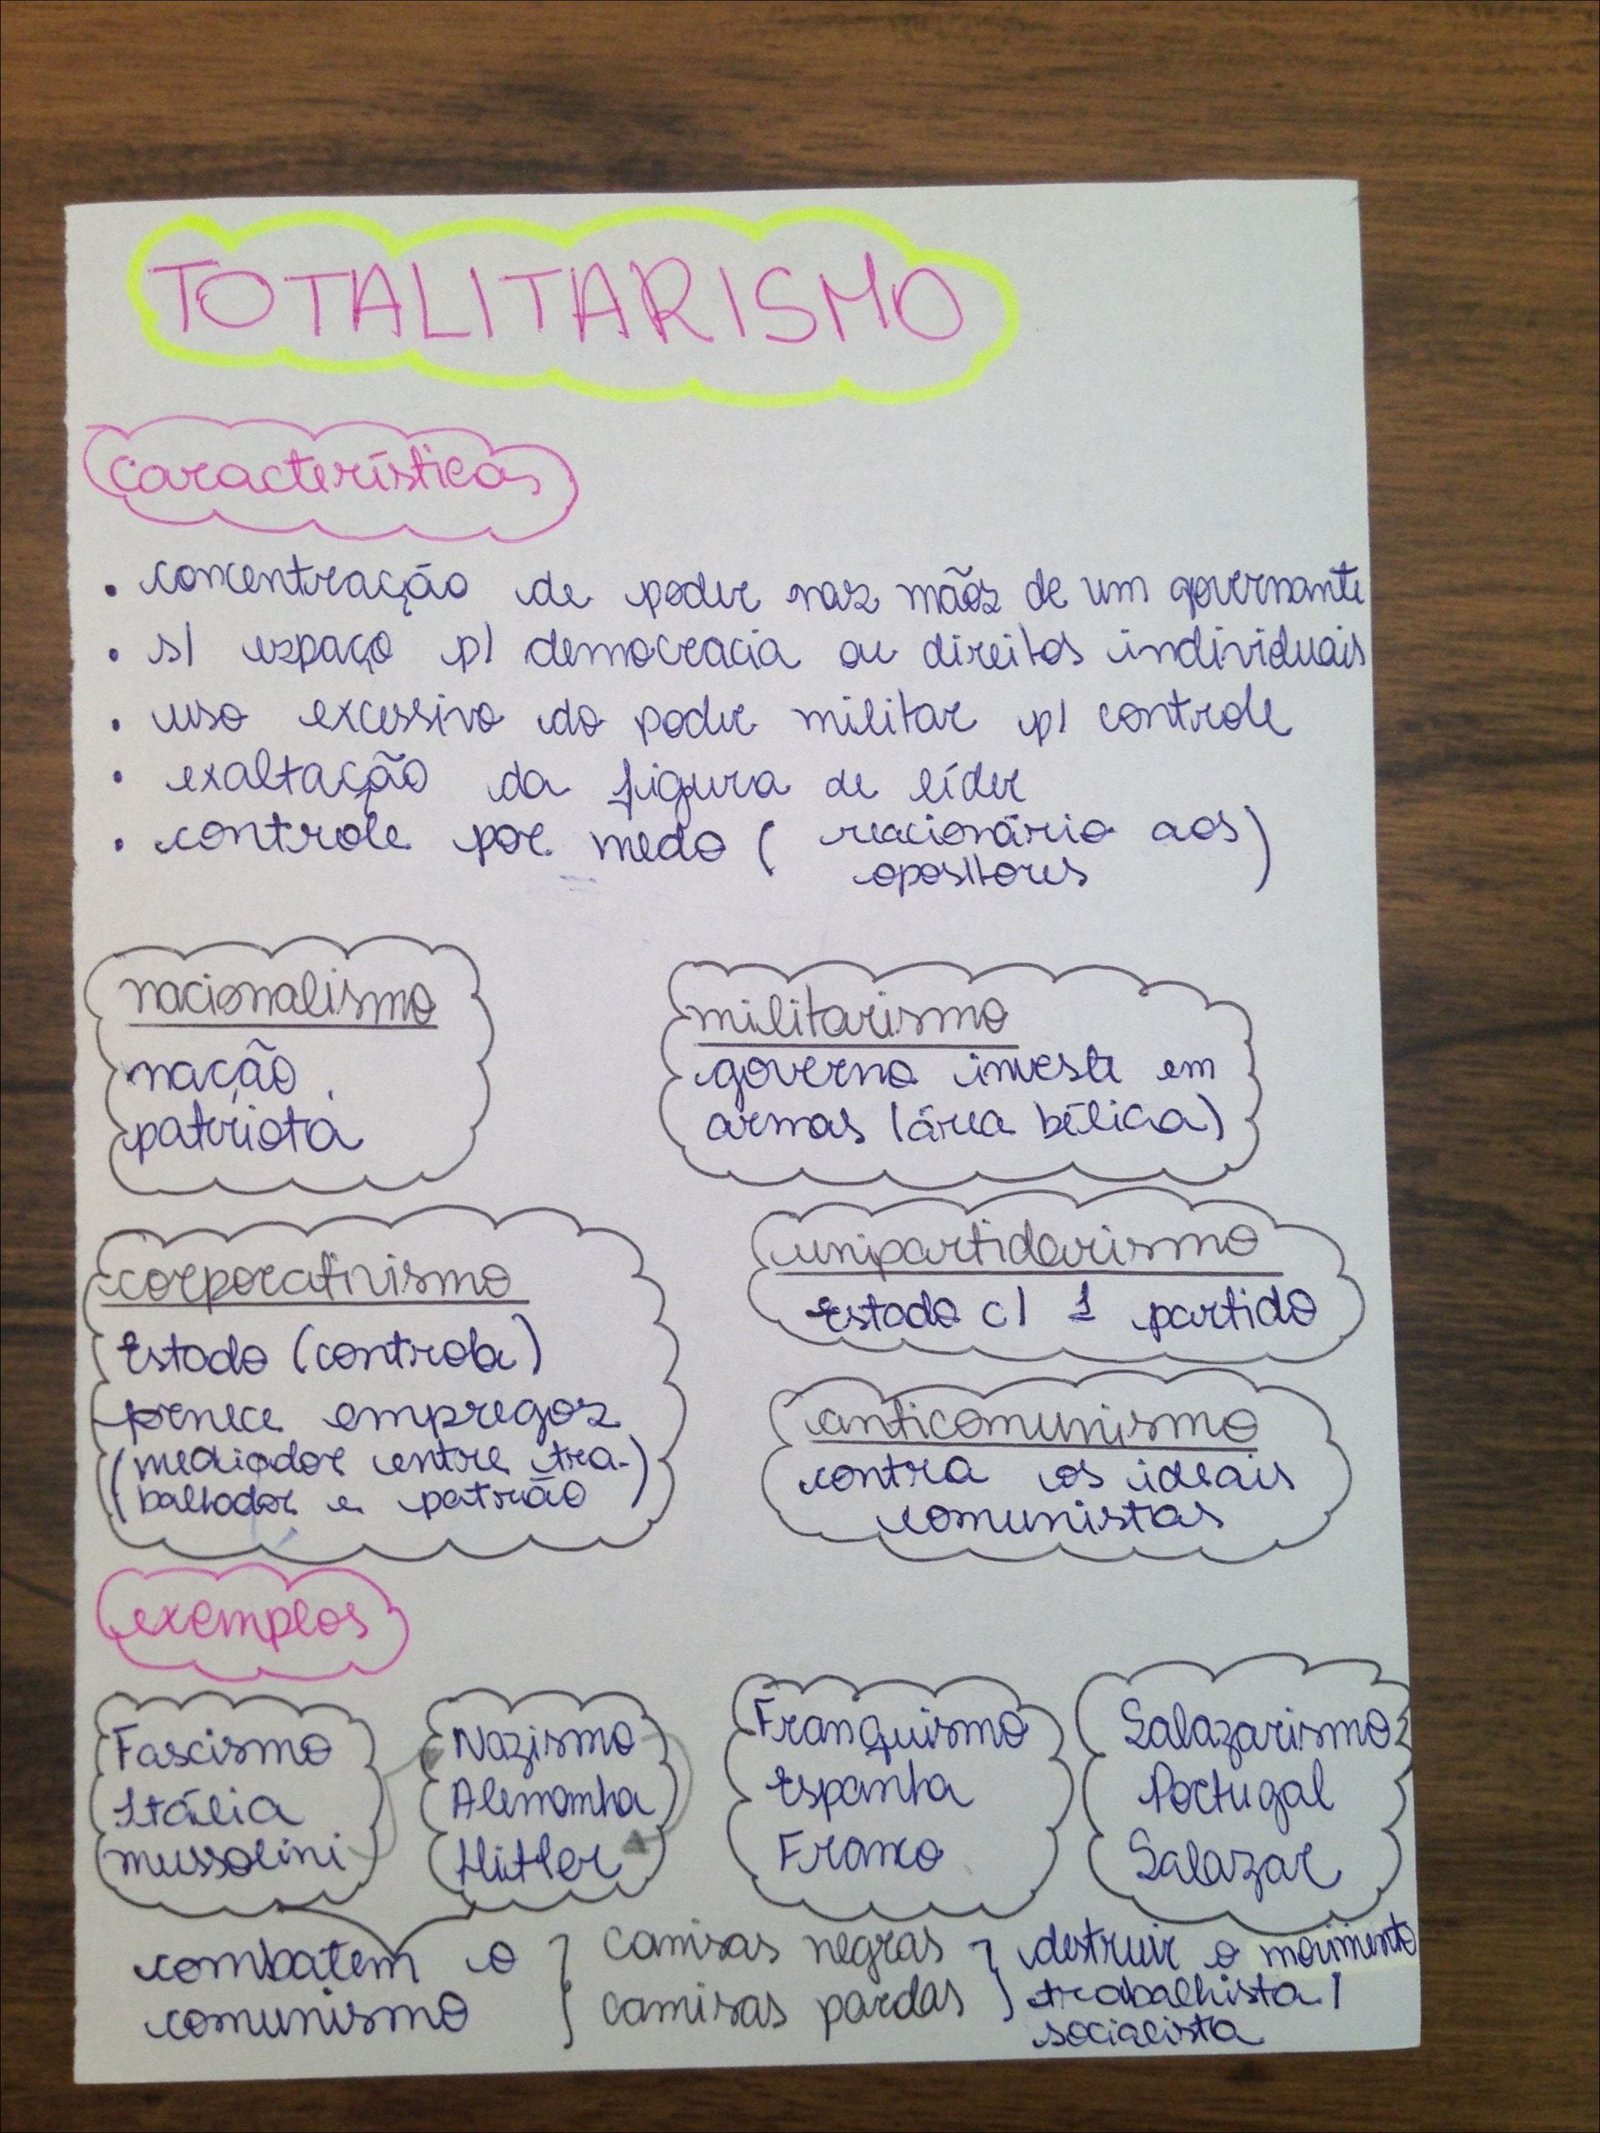 TOTALITARISMO
características
• concentração de poder nas mãos de um governante
• s/ espaço p/ democracia ou direitos individuais
• uso excessivo do poder militar p/ controle
• exaltação da figura de líder
• controle por medo ( reacionário aos
opositores )
nacionalismo
nação
patriota
militarismo
governo investe em
armas (área bélica)
corporativismo
Estado (controla)
empregos
(mediador entre tra-
balhador e patrão)
unipartidarismo
Estado c/ 1 partido
anticomunismo
contra os ideais
comunistas
exemplos
Fascismo
Itália
Mussolini
Nazismo
Alemanha
Hitler
Franquismo
Espanha
Franco
Salazarismo
Portugal
Salazar
combatem o
comunismo
camisas negras
camisas pardas
destruir o movimento
trabalhista/
socialista